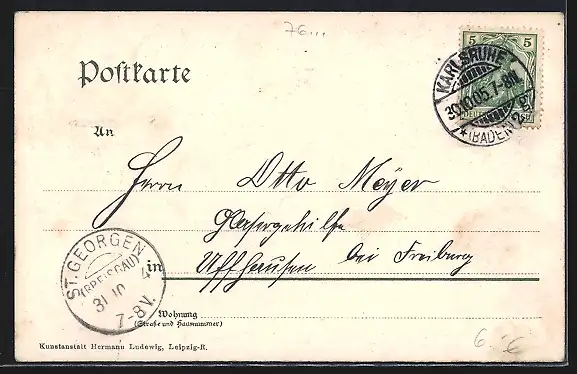 76...
Postkarte
5 5
KARLSRUHE
30.10.05.7-8N.
(BADEN) 2
An
Herrn Otto Meyer
Glasergehilfe
in Uffhausen bei Freiburg
ST. GEORGEN
(BREISGAU)
31 10
7-8V.
Wohnung
(Straße und Hausnummer)
Kunstanstalt Hermann Ludewig, Leipzig-R.